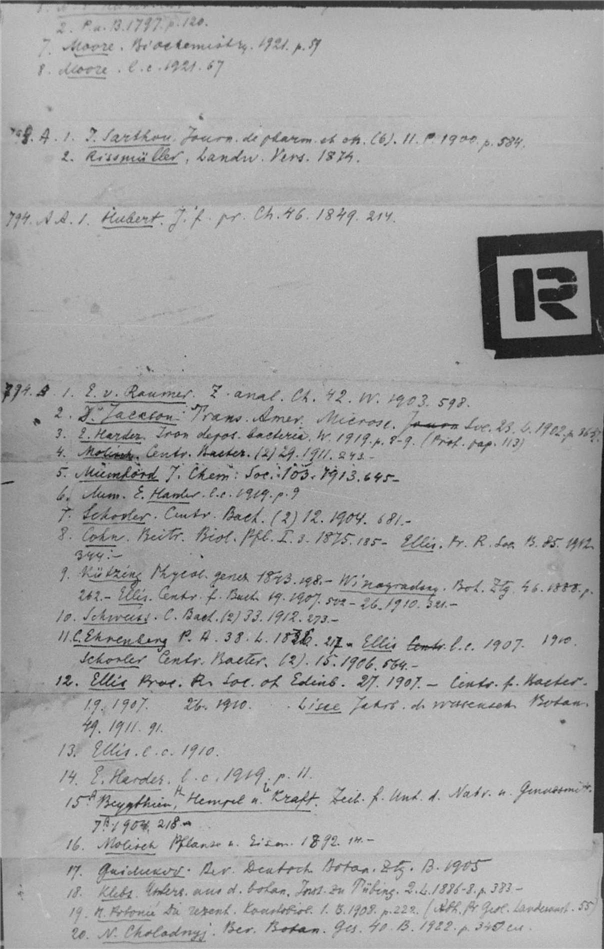 2. P. u. B. 1797. p. 120.
7. Moore. Biochemistry. 1921. p. 59
8. Moore. l. c. 1921. 67
A. 1. J. Sarthou. Journ. de pharm. et ch. (6). 11. P. 1900. p. 584.
2. Rissmüller, Landw. Vers. 1874.
794. A A. 1. Hubert. J. f. pr. Ch. 46. 1849. 214.
R
794. B 1. E. v. Raumer. Z. anal. Ch. 42. W. 1903. 598.
2. D. Jackson. Trans. Amer. Microsc. Soc. 23. L. 1902. p.
3. E. Harder. Iron depos. bacteria. W. 1919. p. 8-9. (Prof. pap. 113)
4. Molisch. Centr. Bacter. (2) 29. 1911. 243.-
5. Mumford J. Chem. Soc. 103. 1913. 645.-
6. E. Harder l. c. 1919. p. 9
7. Schorler. Centr. Bact. (2) 12. 1904. 681.-
8. Cohn. Beitr. Biol. Pfl. I. 3. 1875. 185- Ellis. Pr. R. Soc. B. 85. 1912.
344.-
9. Kützing Phycol. gener 1843. 198.- Winogradsky. Bot. Ztg 46. 1888. p.
262.- Ellis. Centr. f. Bact. 19. 1907. 502-26. 1910. 321.-
10. Schweiss. C. Bact. (2) 33. 1912. 273.-
11. C. Ehrenberg P. A. 38. L. 1836. 217.- Ellis l. c. 1907. 1910.
Schorler Centr. Bacter. (2). 15. 1906. 564.-
12. Ellis Proc. R. Soc. of Edinb. 27. 1907.- Centr. f. Bacter.
19. 1907. 26. 1910. Lieske Jahrb. d. wissensch. Botan.
49. 1911. 91.
13. Ellis. l. c. 1910.
14. E. Harder. l. c. 1919. p. 11.
15. A Beythien, H. Hempel u. L. Kraft. Zeit. f. Unt. d. Nahr. u. Genussmitt.
7. 1904. 218.-
16. Molisch Pflanze u. Eisen. 1892. 14.-
17. Gaidukov. Ber. Deutsch Botan. Ztg. B. 1905
18. Klebs. Unters. aus d. botan. Inst. zu Tübing. 2. L. 1886-8. p. 383-
19. H. Potonié Die rezent. Kaustobiol. 1. B. 1908. p. 222. (Abh. Pr Geol. Landesanst. 55)
20. N. Cholodnyj. Ber. Botan. Ges. 40. B. 1922. p.